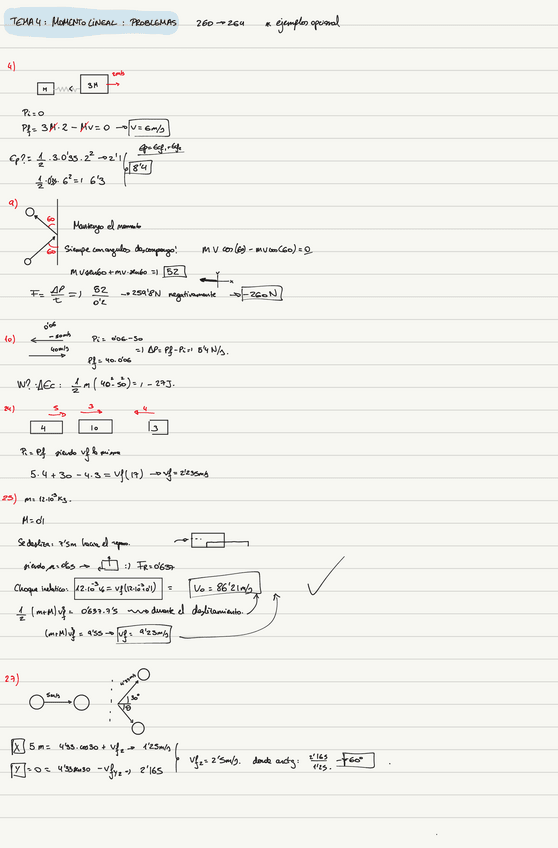 TEMA 4: MOMENTO LINEAL: PROBLEMAS 260 → 264 * ejemplos opcional
4)
2m/s
M 3M
Pi = 0
Pf = 3M·2 - Mv = 0 → v = 6m/s
Ep? = 1/2 · 3·0'35·2² → 2'1
8'4
1/2 · 0'35 · 6² = 6'3
9)
60
60
Mantengo el momento
Siempre con angulos descompongo! MV cos(60) - mv cos(60) = 0
mv sen60 + mv·sen60 => 52
F = ΔP/t => 52/0'2 → 259'8N negativamente → -260N
10)
0'06
-50m/s
40m/s
Pi = 0'06·-50
Pf = 40·0'06
=> ΔP = Pf - Pi = 5'4 N/s.
W? ΔEc: 1/2 m (40² - 50²) = -27J.
24)
5 3 4
4 10 3
Pi = Pf siendo vf la misma
5·4 + 30 - 4·3 = vf(17) → vf = 2'235m/s
25) m = 12·10⁻³ kg.
M = 0'1
Se desliza: 7'5m hasta el reposo.
siendo μ = 0'65 → :) FR = 0'637
Choque inelastico: 12·10⁻³ v₀ = vf(12·10⁻³+0'1) = V₀ = 86'21m/s
1/2 (m+M) vf² = 0'637·7'5 durante el deslizamiento.
(m+M)vf² = 9'55 → vf = 9'23m/s
27)
5m/s
4'33m/s
30°
θ
X 5m = 4'33·cos30 + vf₂ → 1'25m/s
Y = 0 = 4'33sen30 - vfy₂ => 2'165
vf₂ = 2'5m/s. donde arctg: 2'165/1'25 → 60°